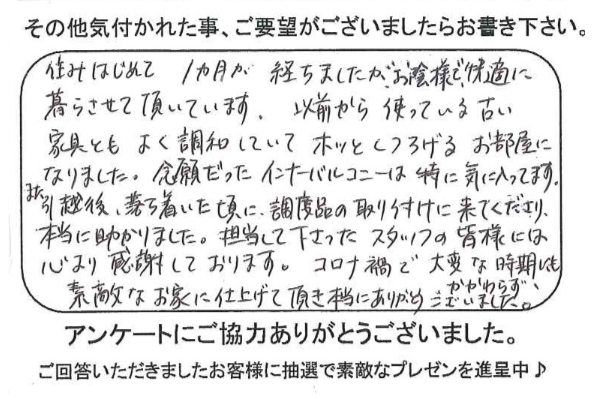 その他気付かれた事、ご要望がございましたらお書き下さい。
住みはじめて 1カ月が 経ちましたが、お陰様で快適に
暮らさせて頂いています。以前から使っている古い
家具とも よく調和していて ホッとくつろげる お部屋に
なりました。念願だった インナーバルコニーは 特に気に入ってます。
また引越後、落ち着いた頃に、調度品の取り付けに来てくださり、
本当に助かりました。担当して下さった スタッフの皆様には
心より 感謝しております。コロナ禍で 大変な時期にも
かかわらず、
素敵なお家に仕上げて頂き本当にありがとうございました。
アンケートにご協力ありがとうございました。
ご回答いただきましたお客様に抽選で素敵なプレゼンを進呈中♪